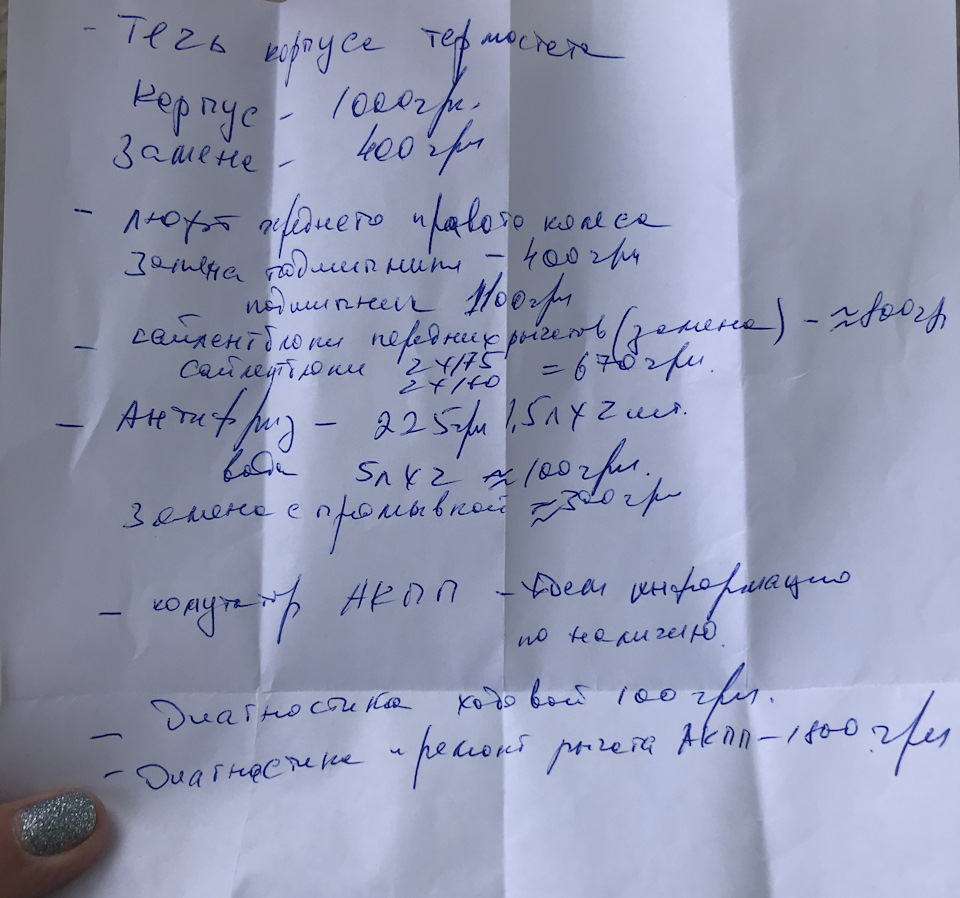 - Течь корпуса термостата
Корпус - 1000грн.
Замена - 400грн
- люфт переднего правого колеса
Замена подшипника - 400грн
подшипник 1100грн
- сайлентблоки передних рычагов (замена) - ≈800гр
сайлентблоки 2х175 = 670грн.
2х160
- Антифриз - 225грн 1,5л х 2 шт.
вода 5л х 2 ≈ 100грн.
Замена с промывкой ≈ 300грн
- комутатор АКПП - ждем информацию
по наличию
- Диагностика ходовой 100грн.
- Диагностика и ремонт рычага АКПП - 1800грн